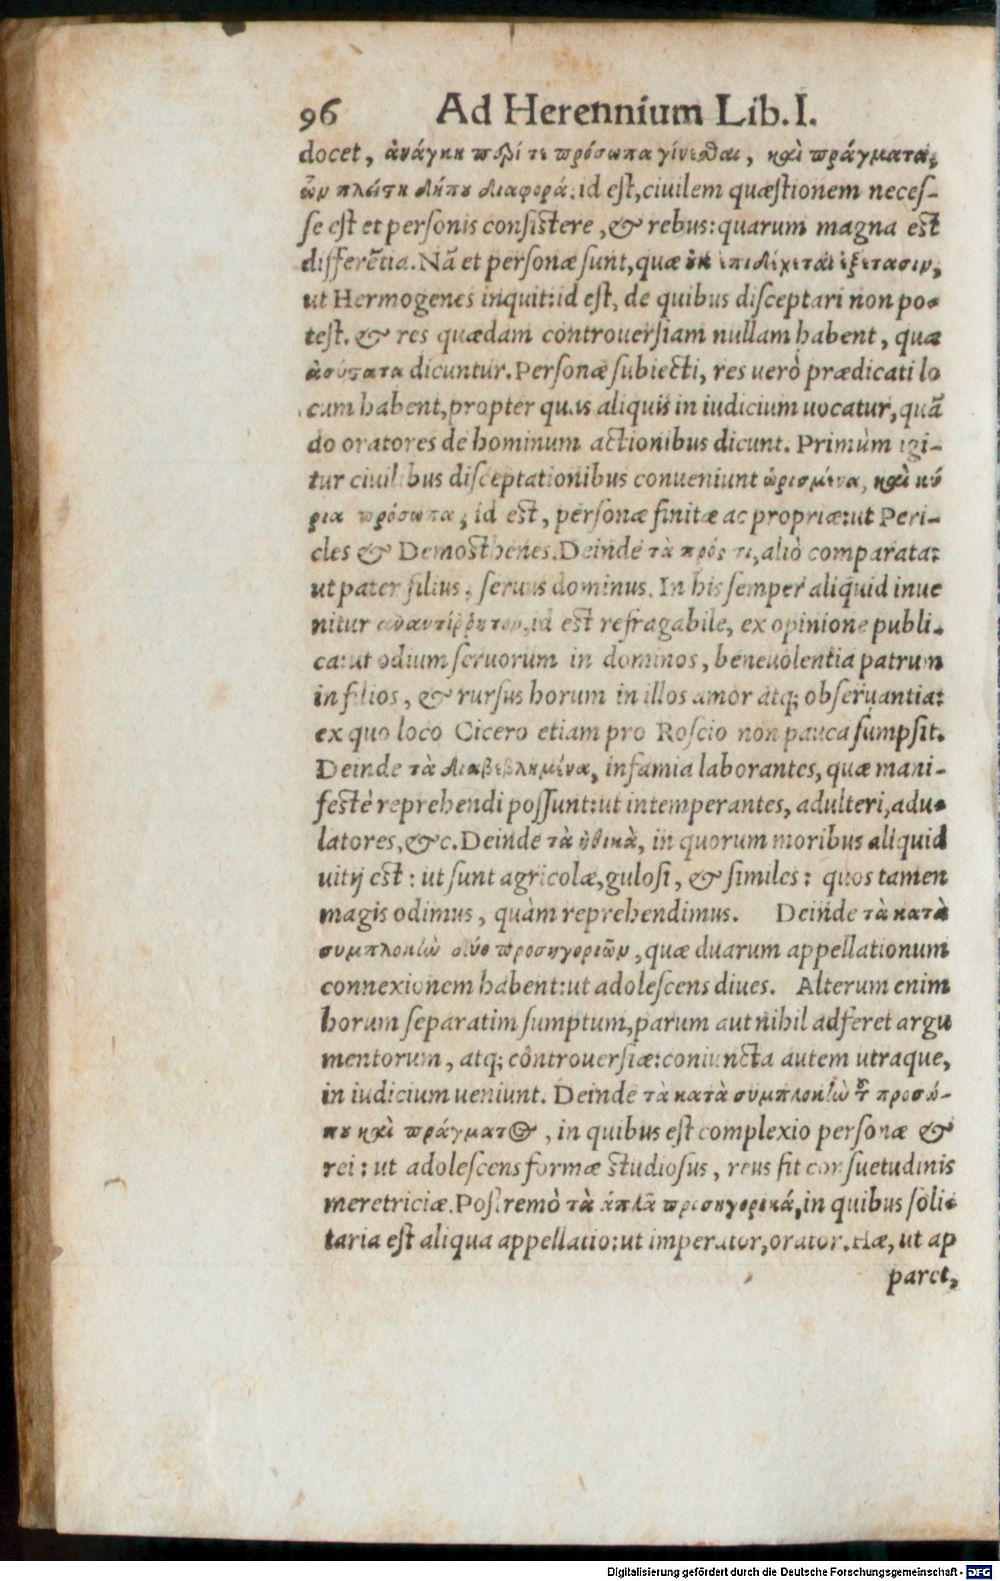 96 Ad Herennium Lib. I.
docet, ἀνάγκη περί τε πρόσωπα γίνεσθαι, καὶ πράγματα,
ὧν πλείστη δήπου διαφορά: id est, ciuilem quæstionem neces-
se est et personis consistere, & rebus: quarum magna est
differẽtia. Nã et personæ sunt, quæ οὐκ ἐπιδέχεται ἐξέτασιν,
ut Hermogenes inquit: id est, de quibus disceptari non po-
test. & res quædam controuersiam nullam habent, quæ
ἀσύστατα dicuntur. Personæ subiecti, res uerò prædicati lo
cum habent, propter quas aliquis in iudicium uocatur, quã
do oratores de hominum actionibus dicunt. Primùm igi-
tur ciuilibus disceptationibus conueniunt ὡρισμένα, καὶ κύ
ρια πρόσωπα, id est, personæ finitæ ac propriæ: ut Peri-
cles & Demosthenes. Deinde τὰ πρός τι, aliò comparata:
ut pater filius, seruus dominus. In his semper aliquid inue
nitur ἀναντίῤῥητον, id est refragabile, ex opinione publi-
ca: ut odium seruorum in dominos, beneuolentia patrum
in filios, & rursus horum in illos amor atq; obseruantia:
ex quo loco Cicero etiam pro Roscio non pauca sumpsit.
Deinde τὰ διαβεβλημένα, infamia laborantes, quæ mani-
festè reprehendi possunt: ut intemperantes, adulteri, adu-
latores, &c. Deinde τὰ ἠθικὰ, in quorum moribus aliquid
uitij est: ut sunt agricolæ, gulosi, & similes: quos tamen
magis odimus, quàm reprehendimus. Deinde τὰ κατὰ
συμπλοκὴν δύο προσηγοριῶν, quæ duarum appellationum
connexionem habent: ut adolescens diues. Alterum enim
horum separatim sumptum, parum aut nihil adferet argu
mentorum, atq; controuersiæ: coniuncta autem utraque,
in iudicium ueniunt. Deinde τὰ κατὰ συμπλοκὴν τοῦ προσώ-
που καὶ πράγματος, in quibus est complexio personæ &
rei: ut adolescens formæ studiosus, reus fit consuetudinis
meretriciæ. Postremò τὰ ἁπλᾶ προσηγορικά, in quibus soli-
taria est aliqua appellatio: ut imperator, orator. Hæ, ut ap
paret,
Digitalisierung gefördert durch die Deutsche Forschungsgemeinschaft - DFG